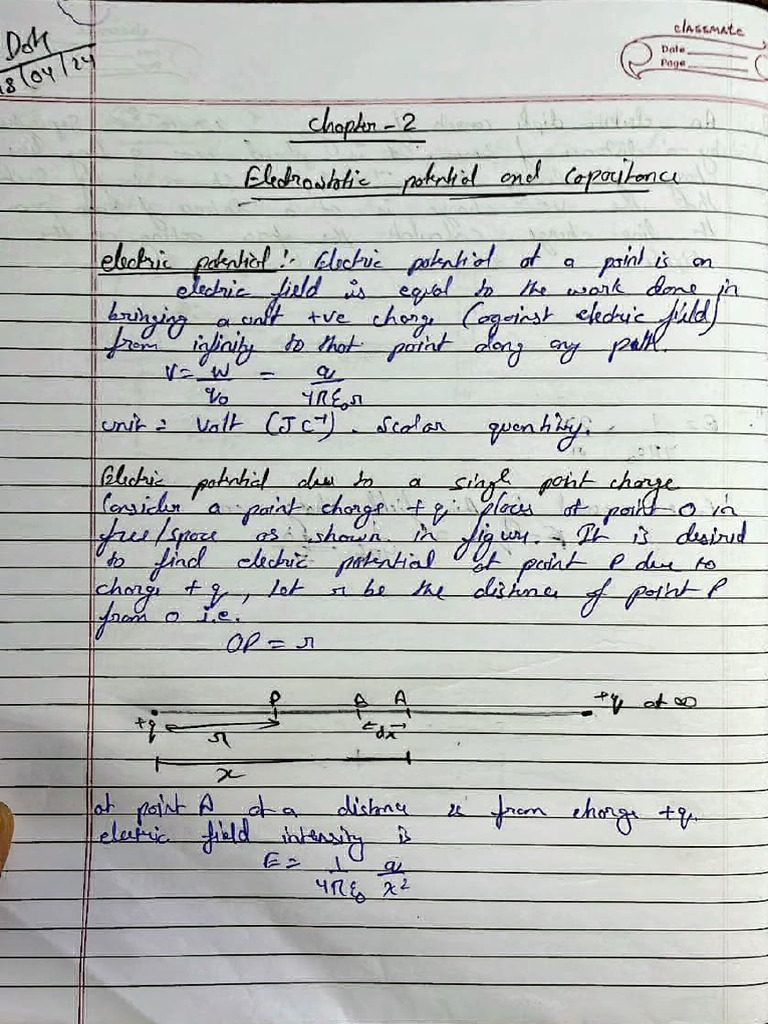 Date
18/04/24
classmate
Date
Page
Chapter-2
Electrostatic potential and Capacitance
electric potential :- Electric potential at a point is an
electric field is equal to the work done in
bringing a unit +ve charge (against electric field)
from infinity to that point along any path.
V = W/q₀ = q/4πε₀r
unit = Volt (JC⁻¹). Scalar quantity.
Electric potential due to a single point charge
Consider a point charge +q places at point O in
free/space as shown in figure. It is desired
to find electric potential at point P due to
charge +q, Let r be the distance of point P
from O i.e.
OP = r
P B A +q at ∞
+q r dx
x
at point A at a distance x from charge +q.
electric field intensity is
E = 1/4πε₀ q/x²